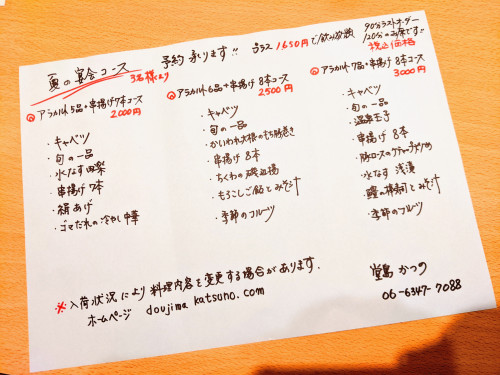 夏の宴会コース
3名様より
予約承ります!!
プラス1650円で飲み放題
90分ラストオーダー
120分のお席です!!
税込価格
アラカルト5品+串揚げ7本コース
2000円
・キャベツ
・旬の一品
・水なす田楽
・串揚げ 7本
・絹あげ
・ゴマだれの冷やし中華
アラカルト6品+串揚げ 8本コース
2500円
・キャベツ
・旬の一品
・かいわれ大根のもち豚巻き
・串揚げ 8本
・ちくわの磯辺揚
・もろこしご飯とみそ汁
・季節のフルーツ
アラカルト7品+串揚げ 8本コース
3000円
・キャベツ
・旬の一品
・温泉玉子
・串揚げ 8本
・豚ロースの
・水なす 浅漬
・鰻の棒寿司とみそ汁
・季節のフルーツ
※入荷状況により料理内容を変更する場合があります.
ホームページ doujima katsuno.com
堂島 かつの
06-6347-7088